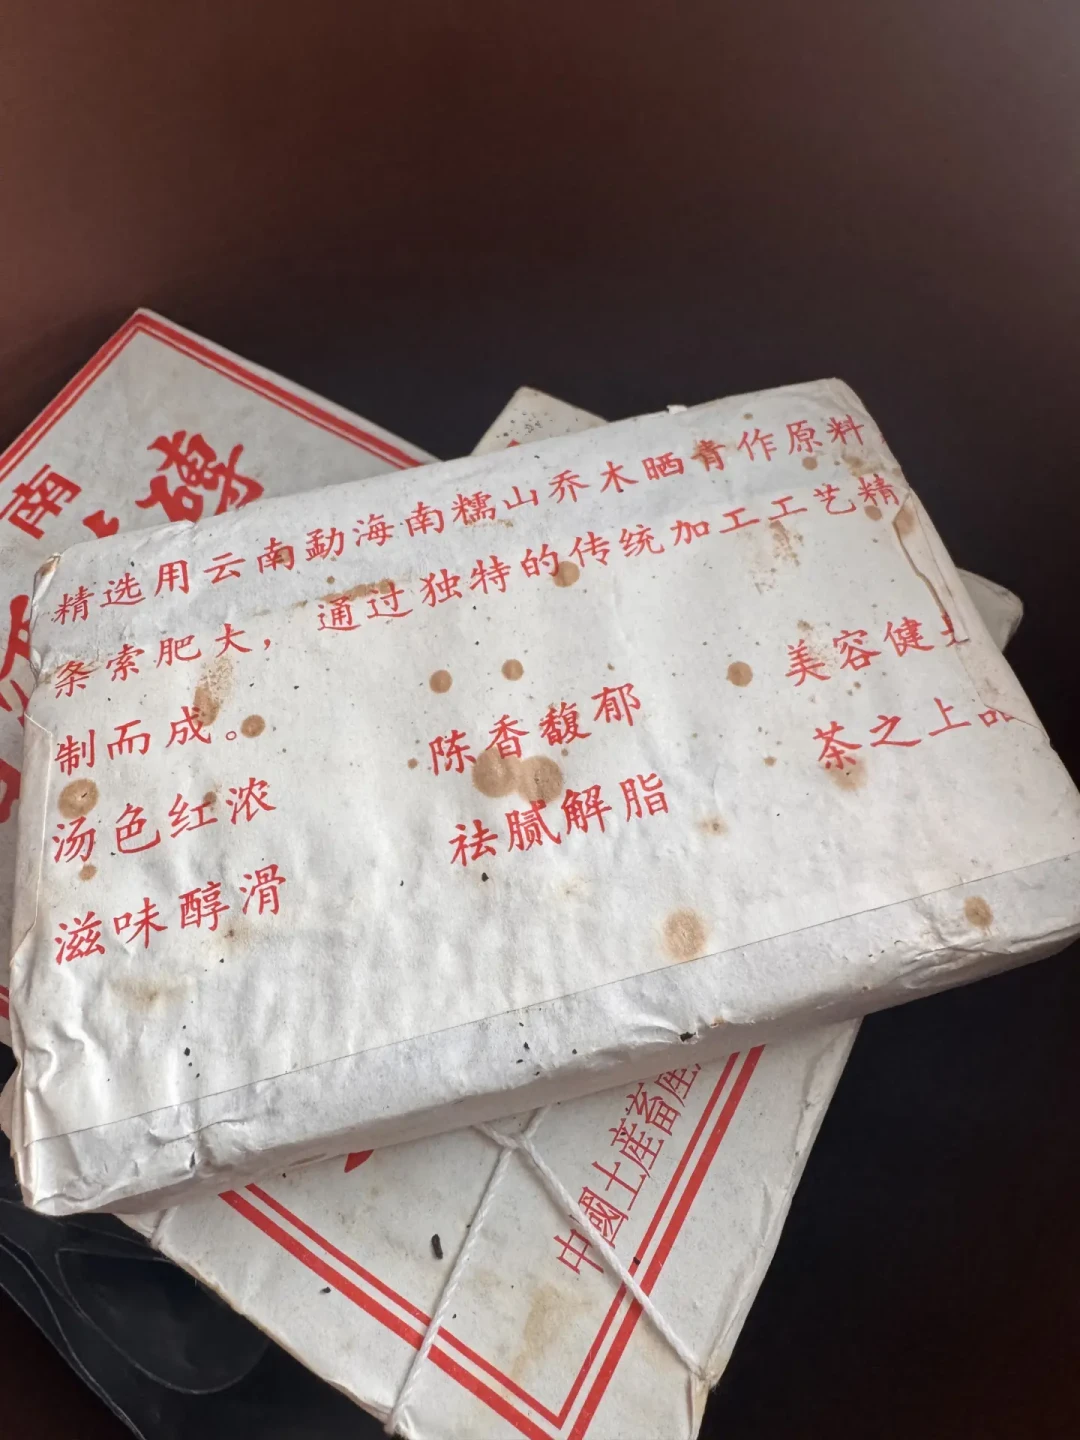 精选用云南勐海南糯山乔木晒青作原料
条索肥大，通过独特的传统加工工艺精
制而成。
汤色红浓 陈香馥郁 美容健
滋味醇滑 祛腻解脂 茶之上品
南
磚
中國土產畜產